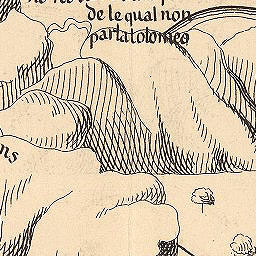 de le qual non
parla tolomeo
ns